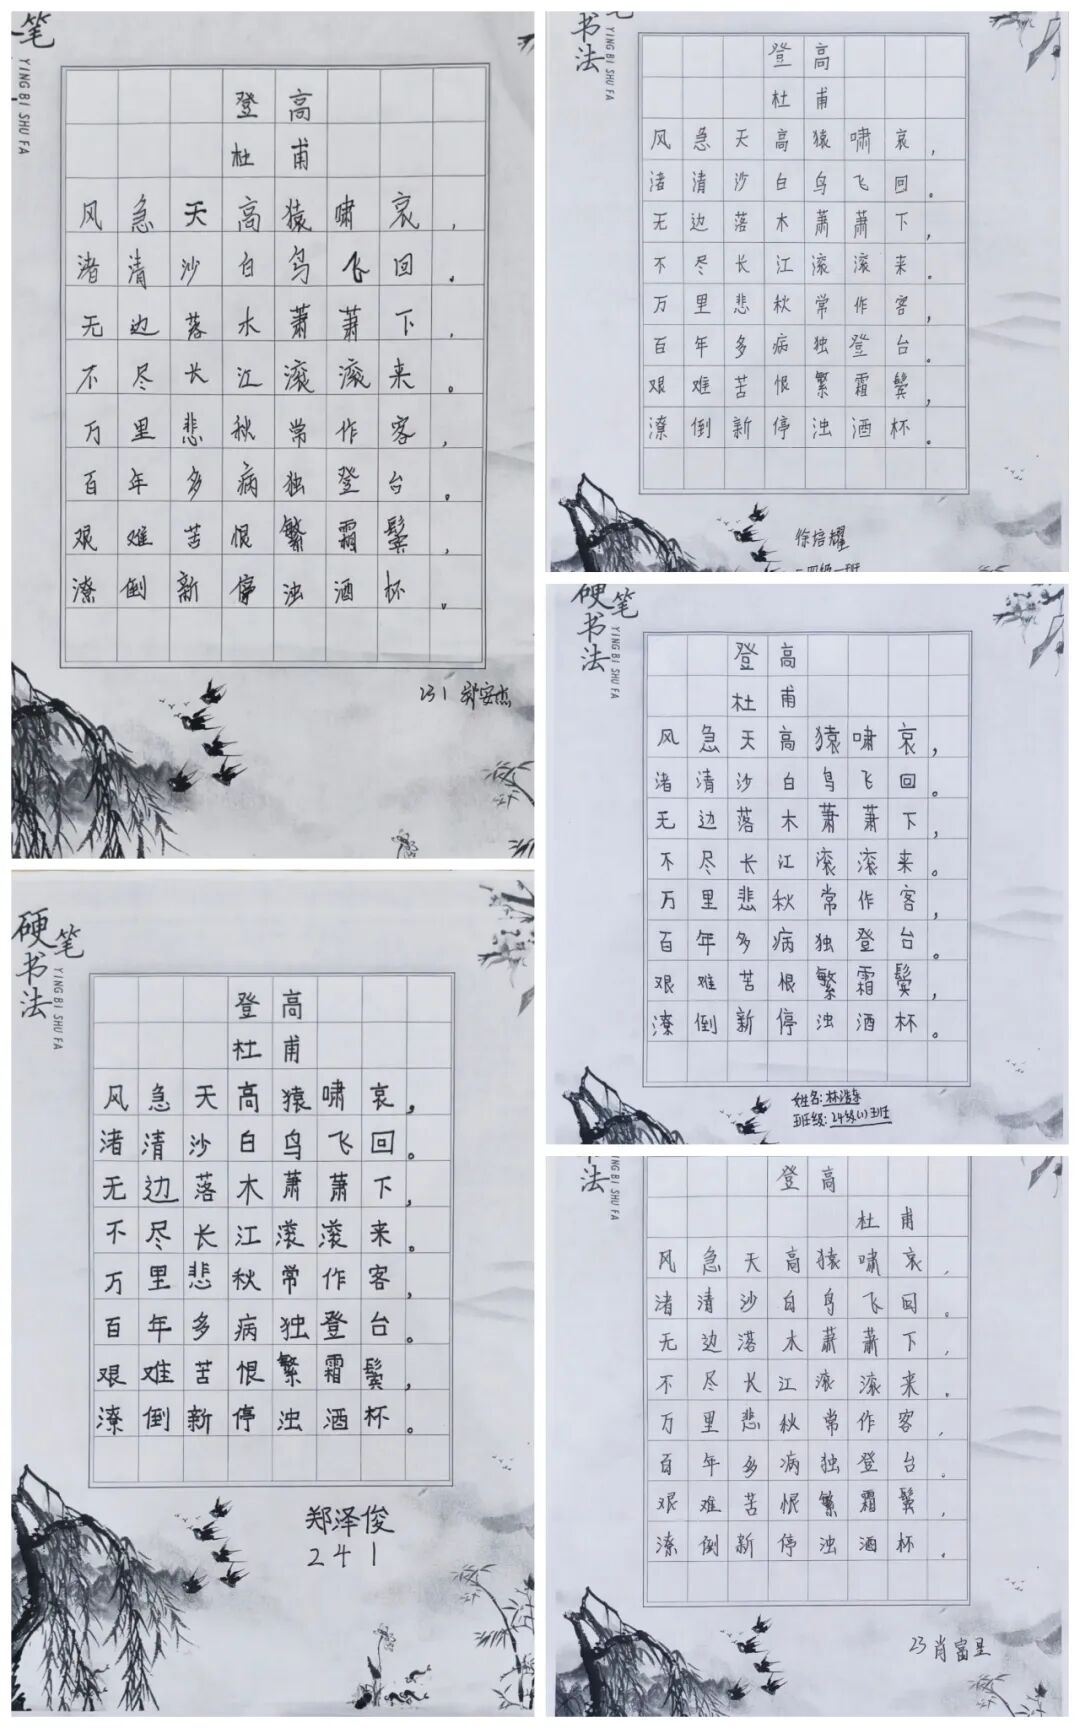 笔
YING BI SHU FA
登高
杜甫
风急天高猿啸哀，
渚清沙白鸟飞回。
无边落木萧萧下，
不尽长江滚滚来。
万里悲秋常作客，
百年多病独登台。
艰难苦恨繁霜鬓，
潦倒新停浊酒杯。
231 郑安杰
书法
YING BI SHU FA
登高
杜甫
风急天高猿啸哀，
渚清沙白鸟飞回。
无边落木萧萧下，
不尽长江滚滚来。
万里悲秋常作客，
百年多病独登台。
艰难苦恨繁霜鬓，
潦倒新停浊酒杯。
徐培耀
硬笔书法
YING BI SHU FA
登高
杜甫
风急天高猿啸哀，
渚清沙白鸟飞回。
无边落木萧萧下，
不尽长江滚滚来。
万里悲秋常作客，
百年多病独登台。
艰难苦恨繁霜鬓，
潦倒新停浊酒杯。
姓名：林浩
班级：24级(1)班
硬笔书法
YING BI SHU FA
登高
杜甫
风急天高猿啸哀，
渚清沙白鸟飞回。
无边落木萧萧下，
不尽长江滚滚来。
万里悲秋常作客，
百年多病独登台。
艰难苦恨繁霜鬓，
潦倒新停浊酒杯。
郑泽俊
241
法
YING BI SHU FA
登高
杜甫
风急天高猿啸哀，
渚清沙白鸟飞回。
无边落木萧萧下，
不尽长江滚滚来。
万里悲秋常作客，
百年多病独登台。
艰难苦恨繁霜鬓，
潦倒新停浊酒杯。
23 肖富星